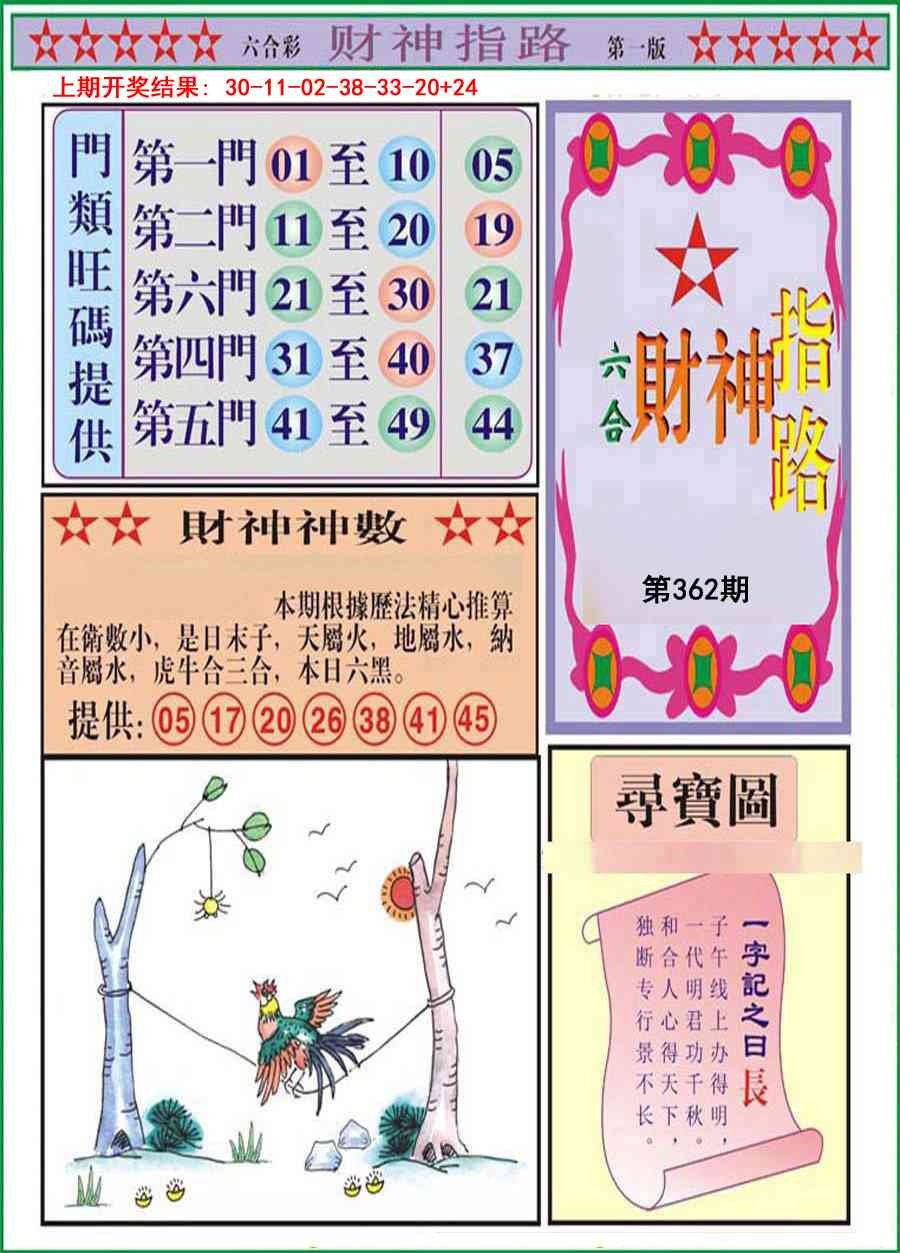 六合彩 财神指路 第一版
上期开奖结果: 30-11-02-38-33-20+24
門類旺碼提供
第一門 01 至 10 05
第二門 11 至 20 19
第六門 21 至 30 21
第四門 31 至 40 37
第五門 41 至 49 44
六合
財神
指路
第362期
財神神數
本期根據歷法精心推算
在衛數小，是日末子，天屬火，地屬水，納
音屬水，虎牛合三合，本日六黑。
提供: 05 17 20 26 38 41 45
尋寶圖
一字記之日長
子午线上办得明，
一代明君功千秋。
和合人心得天下，
独断专行景不长。